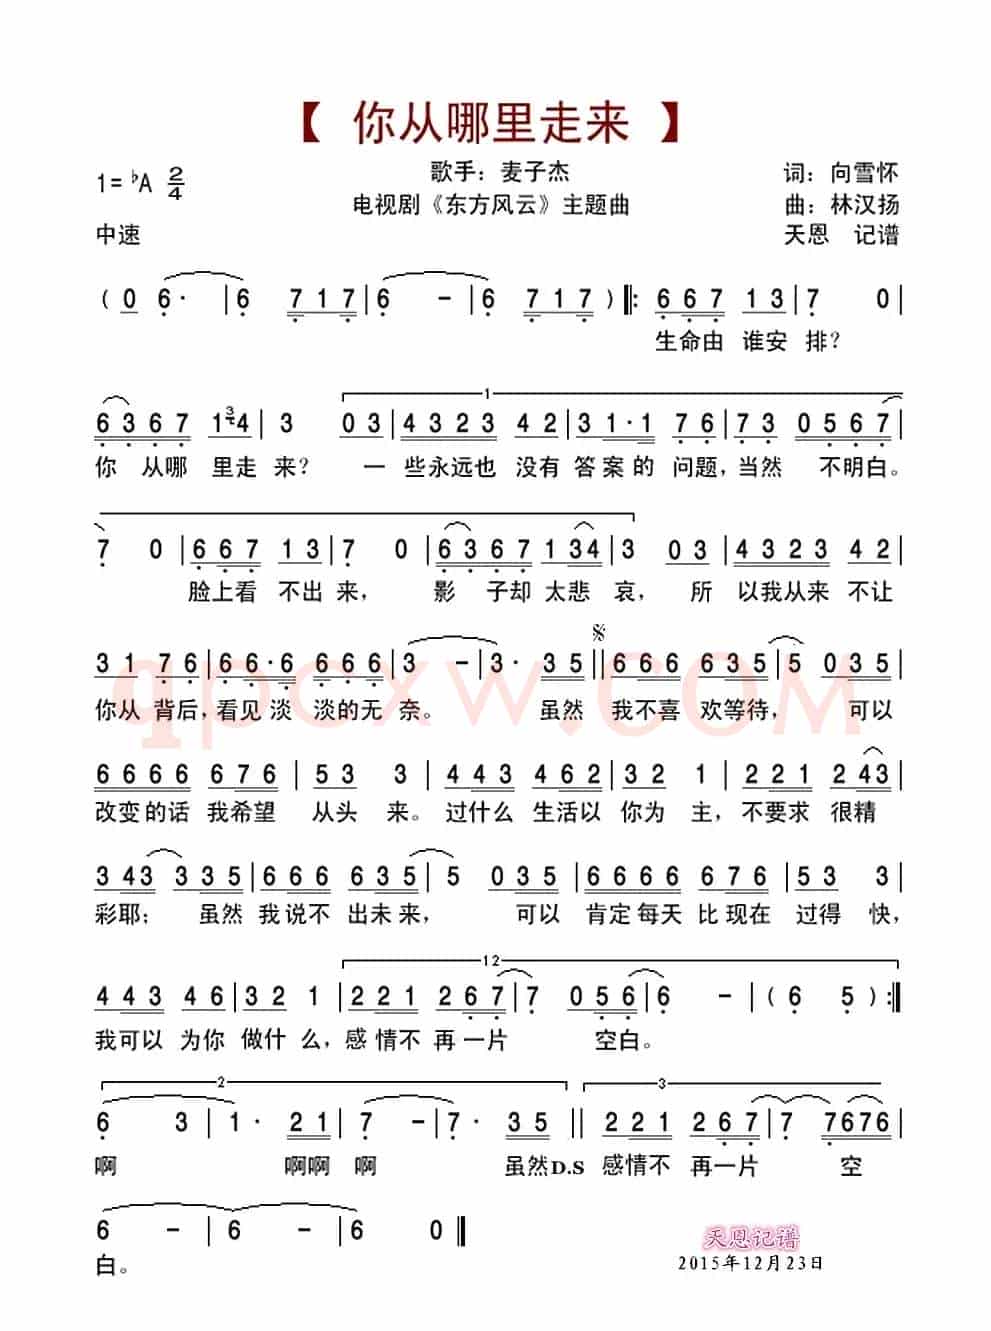 【 你从哪里走来 】
1=♭A 2/4
歌手：麦子杰
词：向雪怀
电视剧《东方风云》主题曲
曲：林汉扬
中速
天恩　记谱
( 0 6· | 6 7 1 7 | 6 - | 6 7 1 7 ) ‖: 6 6 7 1 3 | 7 0 |
生命由 谁安 排？
6 3 6 7 1 3 4 | 3 0 3 | 4 3 2 3 4 2 | 3 1·1 7 6 | 7 3 0 5 6 7 |
你 从哪 里走 来？ 一 些永远也 没有 答案的 问题，当然 不明白。
1
7 0 | 6 6 7 1 3 | 7 0 | 6 3 6 7 1 3 4 | 3 0 3 | 4 3 2 3 4 2 |
脸上看 不出 来， 影 子却 太悲 哀， 所 以我从来 不让
3 1 7 6 | 6 6·6 6 6 6 | 3 - | 3· 3 5 ‖ 6 6 6 6 3 5 | 5 0 3 5 |
你从 背后，看见 淡 淡的无 奈。 虽然 我不喜 欢等待， 可以
6 6 6 6 6 7 6 | 5 3 3 | 4 4 3 4 6 2 | 3 2 1 | 2 2 1 2 4 3 |
改变的话 我希望 从头 来。过什么 生活以 你为 主，不要求 很精
3 4 3 3 3 5 | 6 6 6 6 3 5 | 5 0 3 5 | 6 6 6 6 6 7 6 | 5 3 3 |
彩耶； 虽然 我说不 出未来， 可以 肯定每天 比现在 过得 快，
12
4 4 3 4 6 | 3 2 1 | 2 2 1 2 6 7 | 7 0 5 6 | 6 - | ( 6 5 ) :‖
我可以 为你 做什 么，感情不 再一片 空白。
2
3
6 3 | 1· 2 1 | 7 - | 7· 3 5 ‖ 2 2 1 2 6 7 | 7 7 6 7 6 |
啊 啊啊 啊 虽然D.S 感情不 再一片 空
6 - | 6 - | 6 0 ‖
白。
qpcxw.COM
天恩记谱
2015年12月23日